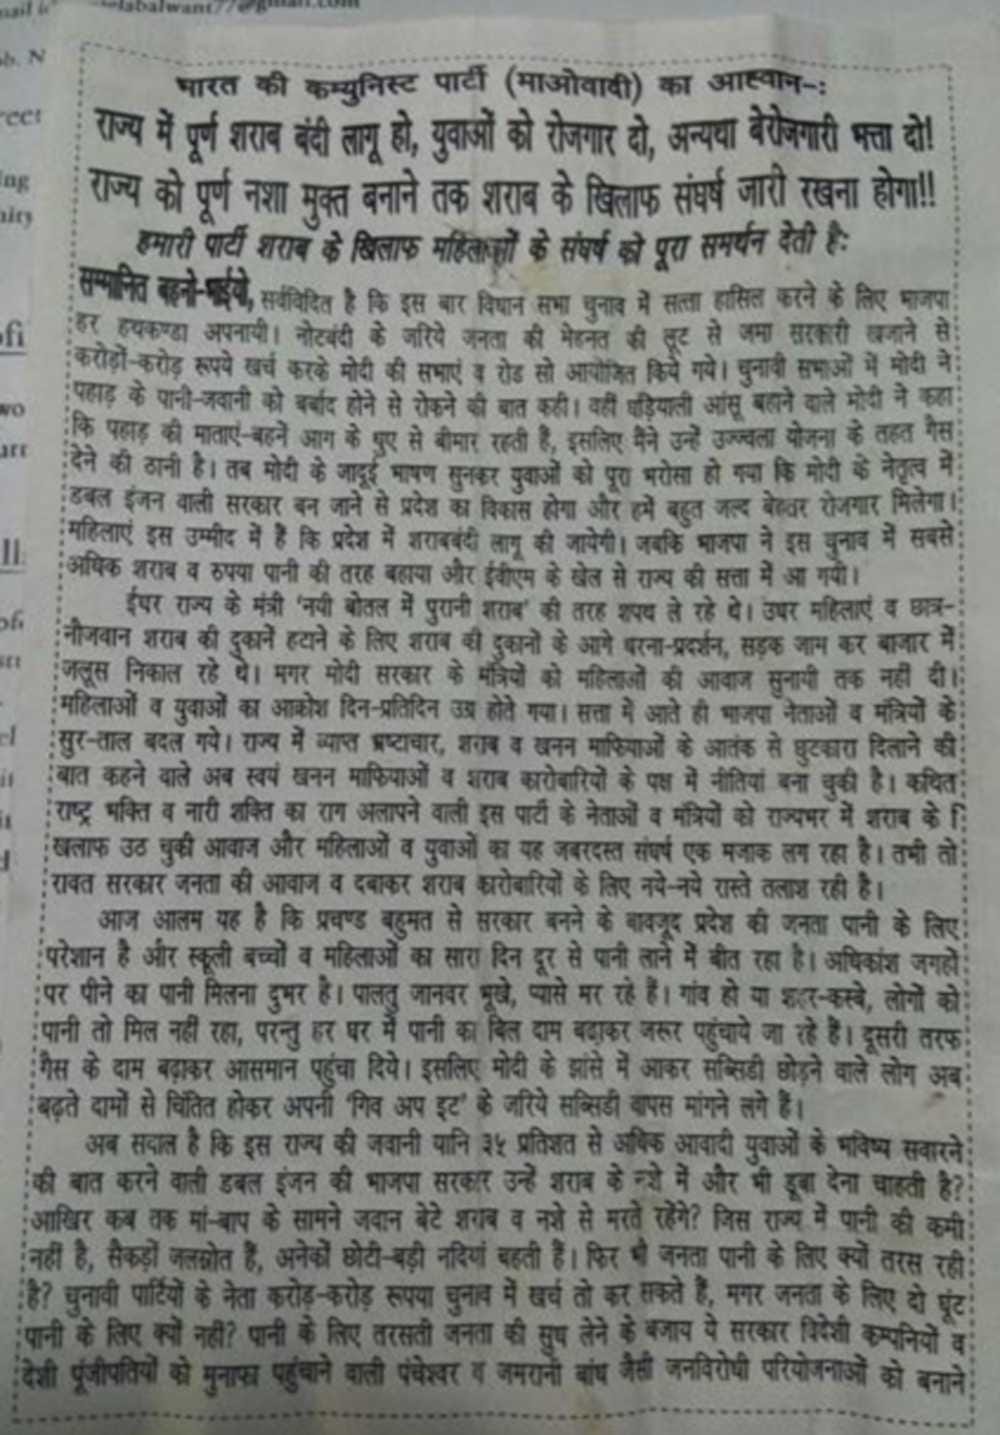 भारत की कम्युनिस्ट पार्टी (माओवादी) का आह्वान-:
राज्य में पूर्ण शराब बंदी लागू हो, युवाओं को रोजगार दो, अन्यथा बेरोजगारी भत्ता दो!
राज्य को पूर्ण नशा मुक्त बनाने तक शराब के खिलाफ संघर्ष जारी रखना होगा!!
हमारी पार्टी शराब के खिलाफ महिलाओं के संघर्ष को पूरा समर्थन देती है:
सम्मानित बहनो-भाईयो, सर्वविदित है कि इस बार विधान सभा चुनाव में सत्ता हासिल करने के लिए भाजपा
हर हथकण्डा अपनायी। नोटबंदी के जरिये जनता की मेहनत की लूट से जमा सरकारी खजाने से
करोड़ों-करोड़ रूपये खर्च करके मोदी की सभाएं व रोड सो आयोजित किये गये। चुनावी सभाओं में मोदी ने
पहाड़ के पानी-जवानी को बर्बाद होने से रोकने की बात कही। वहीं घड़ियाली आंसू बहाने वाले मोदी ने कहा
कि पहाड़ की माताएं-बहनें आग के धुए से बीमार रहती हैं, इसलिए मैंने उन्हें उज्ज्वला योजना के तहत गैस
देने की ठानी है। तब मोदी के जादूई भाषण सुनकर युवाओं को पूरा भरोसा हो गया कि मोदी के नेतृत्व में
डबल इंजन वाली सरकार बन जाने से प्रदेश का विकास होगा और हमें बहुत जल्द बेहतर रोजगार मिलेगा।
महिलाएं इस उम्मीद में हैं कि प्रदेश में शराबबंदी लागू की जायेगी। जबकि भाजपा ने इस चुनाव में सबसे
अधिक शराब व रुपया पानी की तरह बहाया और ईवीएम के खेल से राज्य की सत्ता में आ गयी।
ईधर राज्य के मंत्री 'नयी बोतल में पुरानी शराब' की तरह शपथ ले रहे थे। उधर महिलाएं व छात्र-
नौजवान शराब की दुकानें हटाने के लिए शराब की दुकानों के आगे धरना-प्रदर्शन, सड़क जाम कर बाजार में
जलूस निकाल रहे थे। मगर मोदी सरकार के मंत्रियों को महिलाओं की आवाज सुनायी तक नहीं दी।
महिलाओं व युवाओं का आक्रोश दिन-प्रतिदिन उग्र होते गया। सत्ता में आते ही भाजपा नेताओं व मंत्रियों के
सुर-ताल बदल गये। राज्य में व्याप्त भ्रष्टाचार, शराब व खनन माफियाओं के आतंक से छुटकारा दिलाने की
बात कहने वाले अब स्वयं खनन माफियाओं व शराब कारोबारियों के पक्ष में नीतियां बना चुकी है। कथित
राष्ट्र भक्ति व नारी शक्ति का राग अलापने वाली इस पार्टी के नेताओं व मंत्रियों को राज्यभर में शराब के ि
खलाफ उठ चुकी आवाज और महिलाओं व युवाओं का यह जबरदस्त संघर्ष एक मजाक लग रहा है। तभी तो
रावत सरकार जनता की आवाज व दबाकर शराब कारोबारियों के लिए नये-नये रास्ते तलाश रही है।
आज आलम यह है कि प्रचण्ड बहुमत से सरकार बनने के बावजूद प्रदेश की जनता पानी के लिए
परेशान है और स्कूली बच्चों व महिलाओं का सारा दिन दूर से पानी लाने में बीत रहा है। अधिकांश जगहों
पर पीने का पानी मिलना दुभर है। पालतु जानवर भूखे, प्यासे मर रहे हैं। गांव हो या शहर-कस्बे, लोगों को
पानी तो मिल नहीं रहा, परन्तु हर घर में पानी का बिल दाम बढ़ाकर जरूर पहुंचाये जा रहे हैं। दूसरी तरफ
गैस के दाम बढ़ाकर आसमान पहुंचा दिये। इसलिए मोदी के झांसे में आकर सब्सिडी छोड़ने वाले लोग अब
बढ़ते दामों से चिंतित होकर अपनी 'गिव अप इट' के जरिये सब्सिडी वापस मांगने लगे हैं।
अब सवाल है कि इस राज्य की जवानी यानि ३५ प्रतिशत से अधिक आवादी युवाओं के भविष्य सवारने
की बात करने वाली डबल इंजन की भाजपा सरकार उन्हें शराब के नशे में और भी डूबा देना चाहती है?
आखिर कब तक मां-बाप के सामने जवान बेटे शराब व नशे से मरते रहेंगे? जिस राज्य में पानी की कमी
नहीं है, सैकड़ों जलस्रोत हैं, अनेकों छोटी-बड़ी नदियां बहती हैं। फिर भी जनता पानी के लिए क्यों तरस रही
है? चुनावी पार्टियों के नेता करोड़-करोड़ रूपया चुनाव में खर्च तो कर सकते हैं, मगर जनता के लिए दो घूंट
पानी के लिए क्यों नहीं? पानी के लिए तरसती जनता की सुध लेने के बजाय ये सरकार विदेशी कम्पनियों व
देशी पूंजीपतियों को मुनाफा पहुंचाने वाली पंचेश्वर व जमरानी बांध जैसी जनविरोधी परियोजनाओं को बनाने